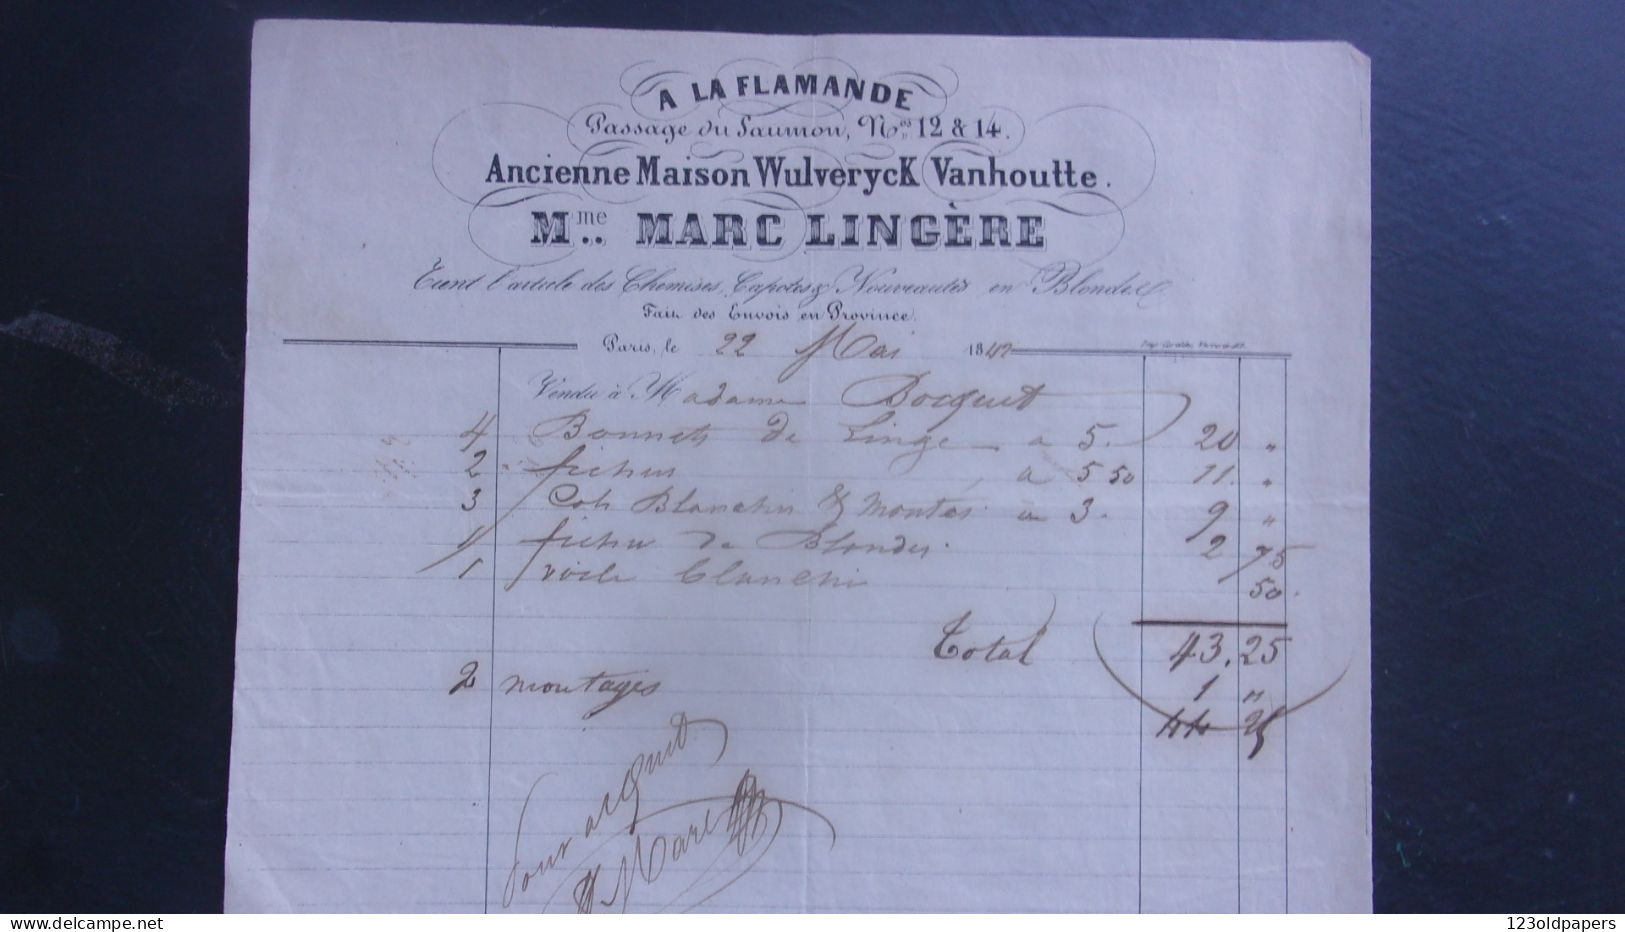 A LA FLAMANDE
Passage du Saumon, Nos 12 & 14.
Ancienne Maison Wulveryck Vanhoutte.
Mme MARC LINGÈRE
Tient l'article des Chemises, Capotes & Nouveautés en Blondes &c.
Fait des Envois en Province.
Paris, le 22 Mai 1842
Vendu à Madame Bocquet
4 Bonnets de Linge a 5. 20 "
2 fichus a 5 50 11. "
3 Cols Blanchis & montés a 3. 9 "
1 fichu de Blondes. 2 75
1 voile blanchi 50.
Total 43,25
2 montages 1 "
44 25
Pour acquit
Marc
delcampe.net
123oldpapers